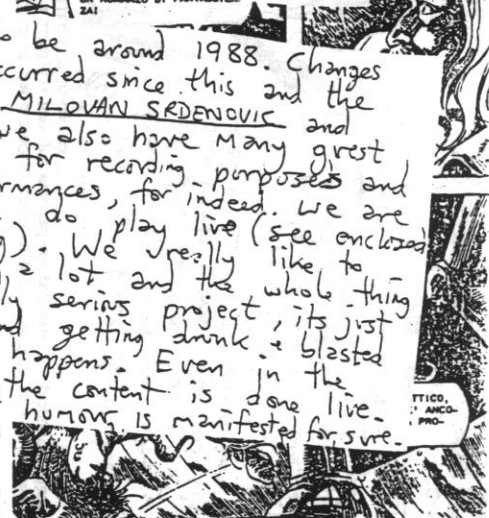 ZAI
be around 1988. Changes
ccurred since this and the
MILOVAN SRDENOVIC and
we also have many grest
for recording purposes and
rmances, for indeed. we are
do play live (see enclosed
). We really like to
a lot and the whole thing
ly serius project, its jist
nd getting drunk & blasted
happens. Even in the
the content is done live.
humour is manifested for sure.
TTICO,
ANCO-
PRO-